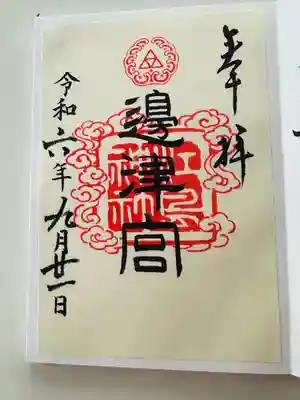 奉拝
邊津宮
令和六年九月廿一日